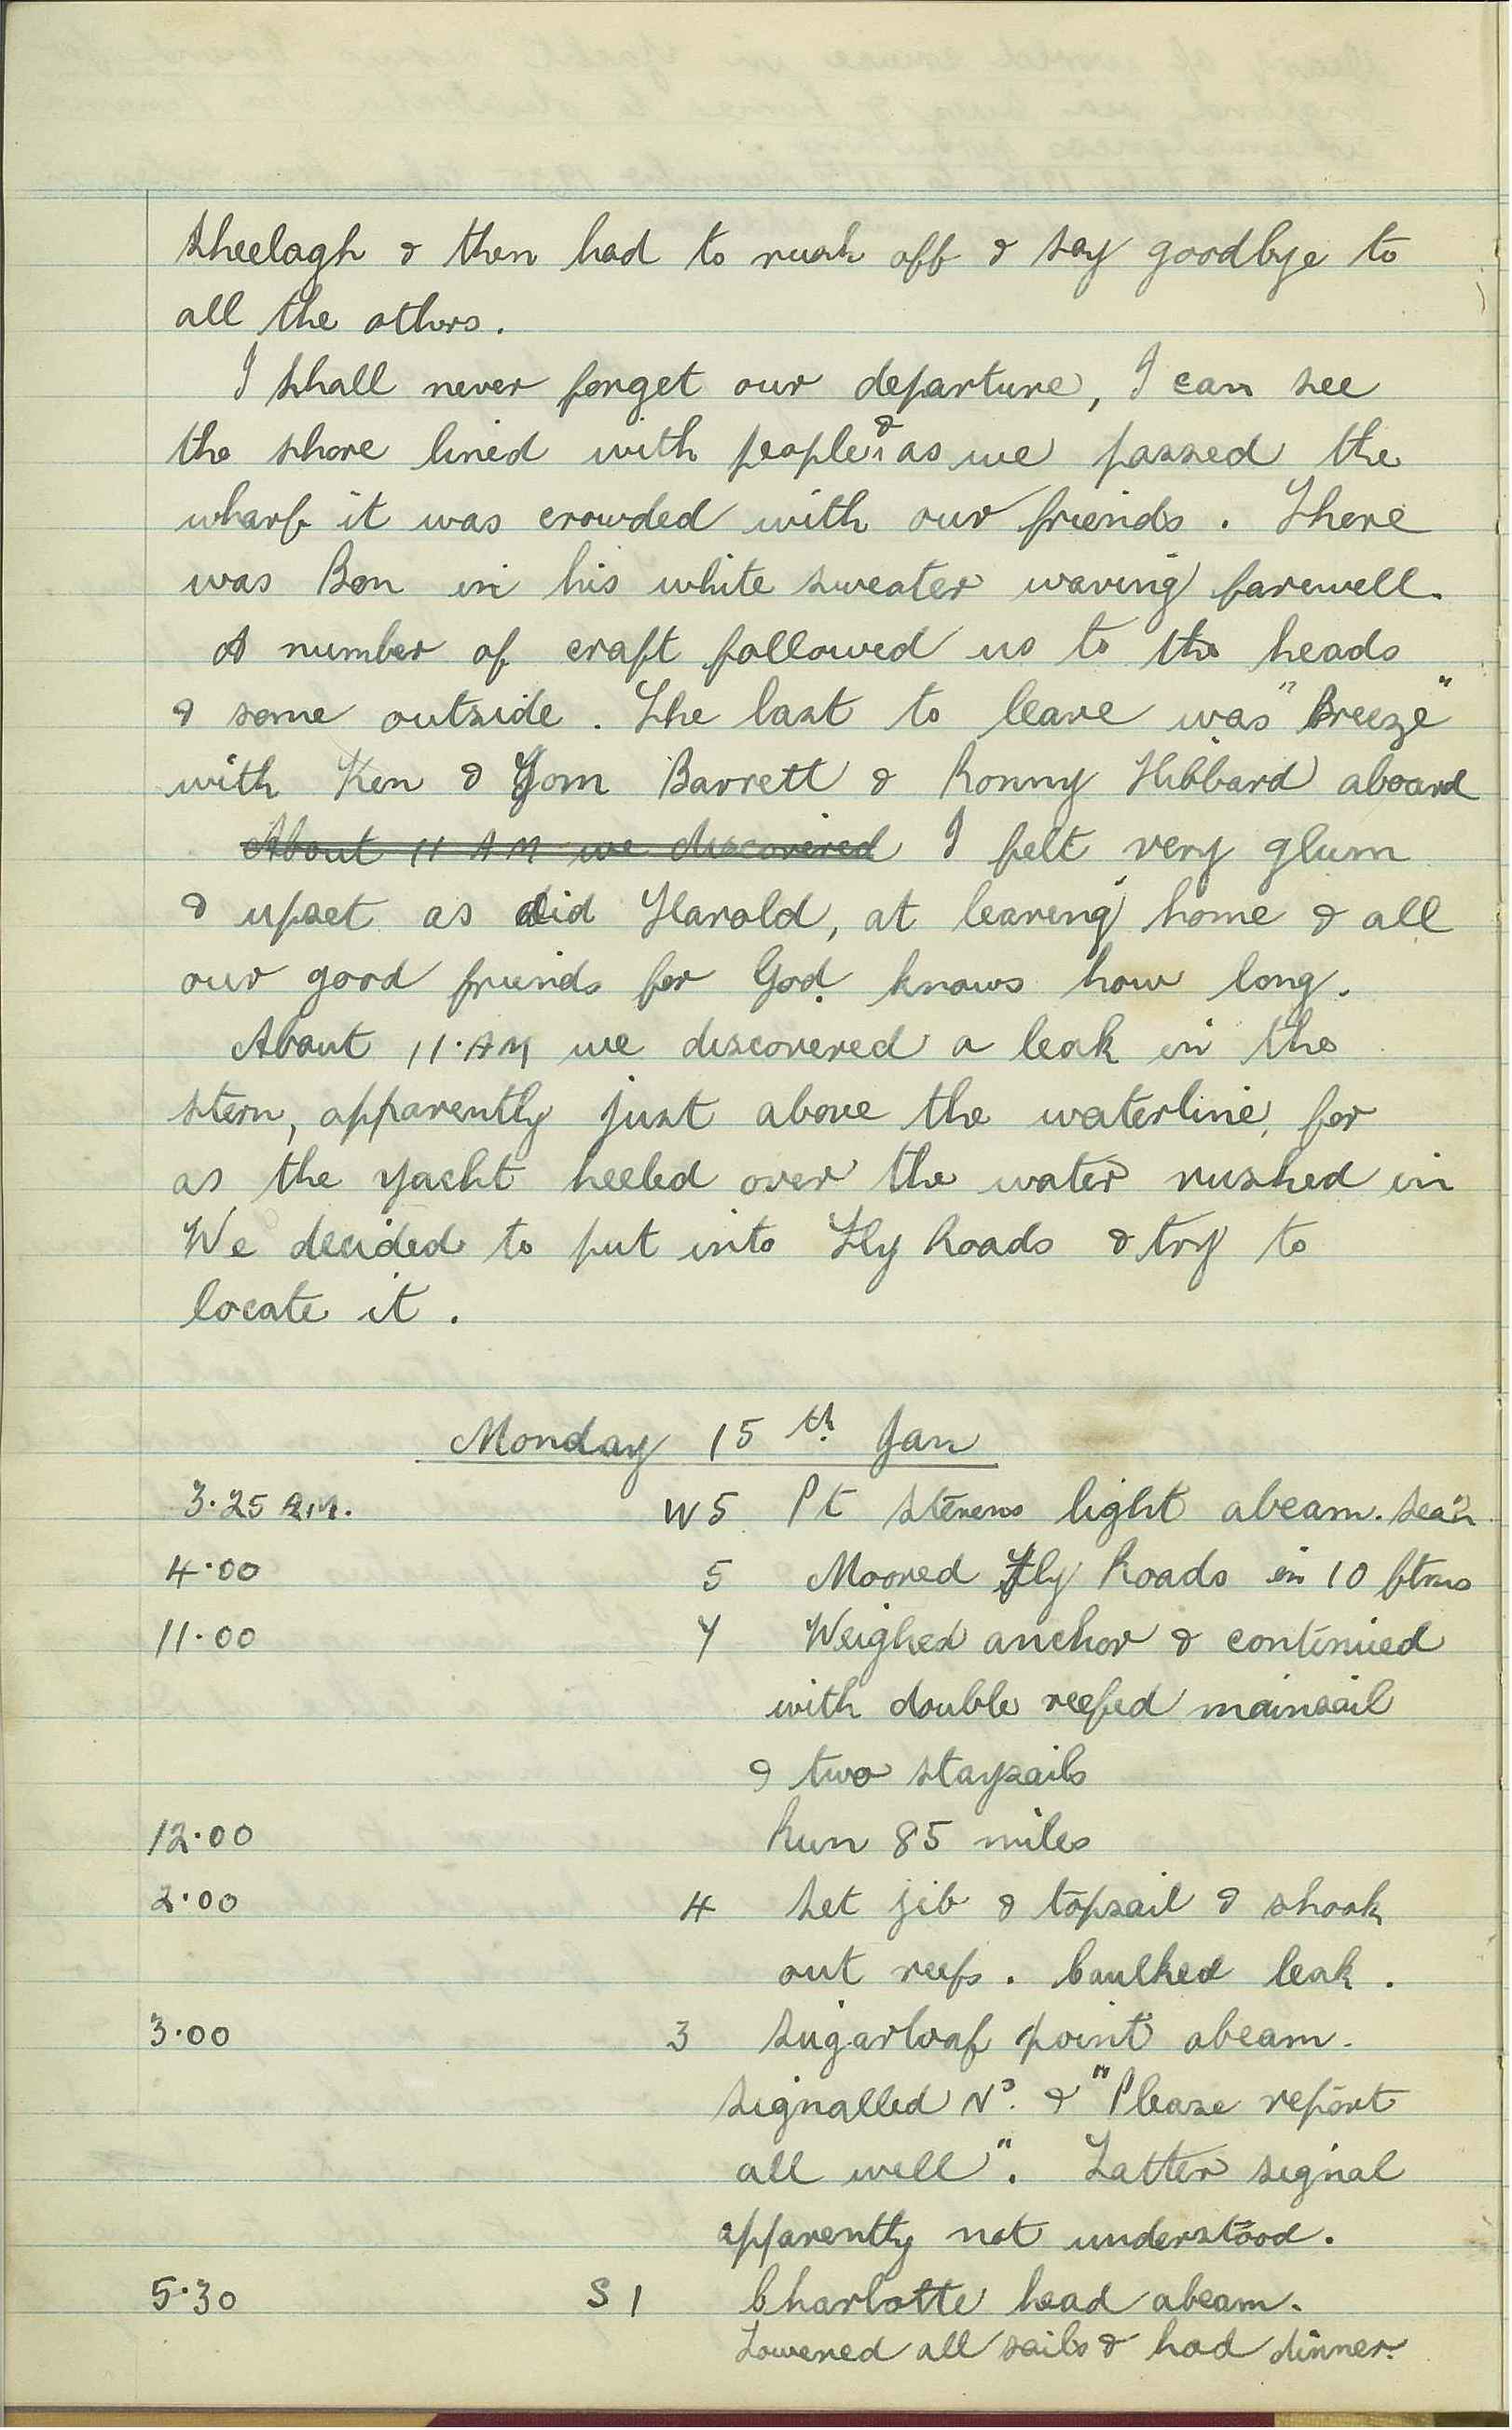 Sheelagh & then had to rush off & say goodbye to
all the others.
I shall never forget our departure, I can see
the shore lined with people & as we passed the
wharf it was crowded with our friends. There
was Bon in his white sweater waving farewell.
A number of craft followed us to the heads
& some outside. The last to leave was "Breeze"
with Ken & Tom Barrett & Ronny Hibbard aboard
About 11 AM we discovered I felt very glum
& upset as did Harold, at leaving home & all
our good friends for God knows how long.
About 11.AM we discovered a leak in the
stern, apparently just above the waterline, for
as the yacht heeled over the water rushed in
We decided to put into Fly Roads & try to
locate it.
Monday 15th. Jan
3.25 A.M. W5 Pt Stevens light abeam.
4.00 5 Moored Fly Roads in 10 ftms
11.00 7 Weighed anchor & continued
with double reefed mainsail
& two staysails
12.00 Run 85 miles
2.00 4 Set jib & topsail & shook
out reefs. Caulked leak.
3.00 3 Sugarloaf point abeam.
Signalled No. & "Please report
all well". Latter signal
apparently not understood.
5.30 S 1 Charlotte head abeam.
Lowered all sails & had dinner.